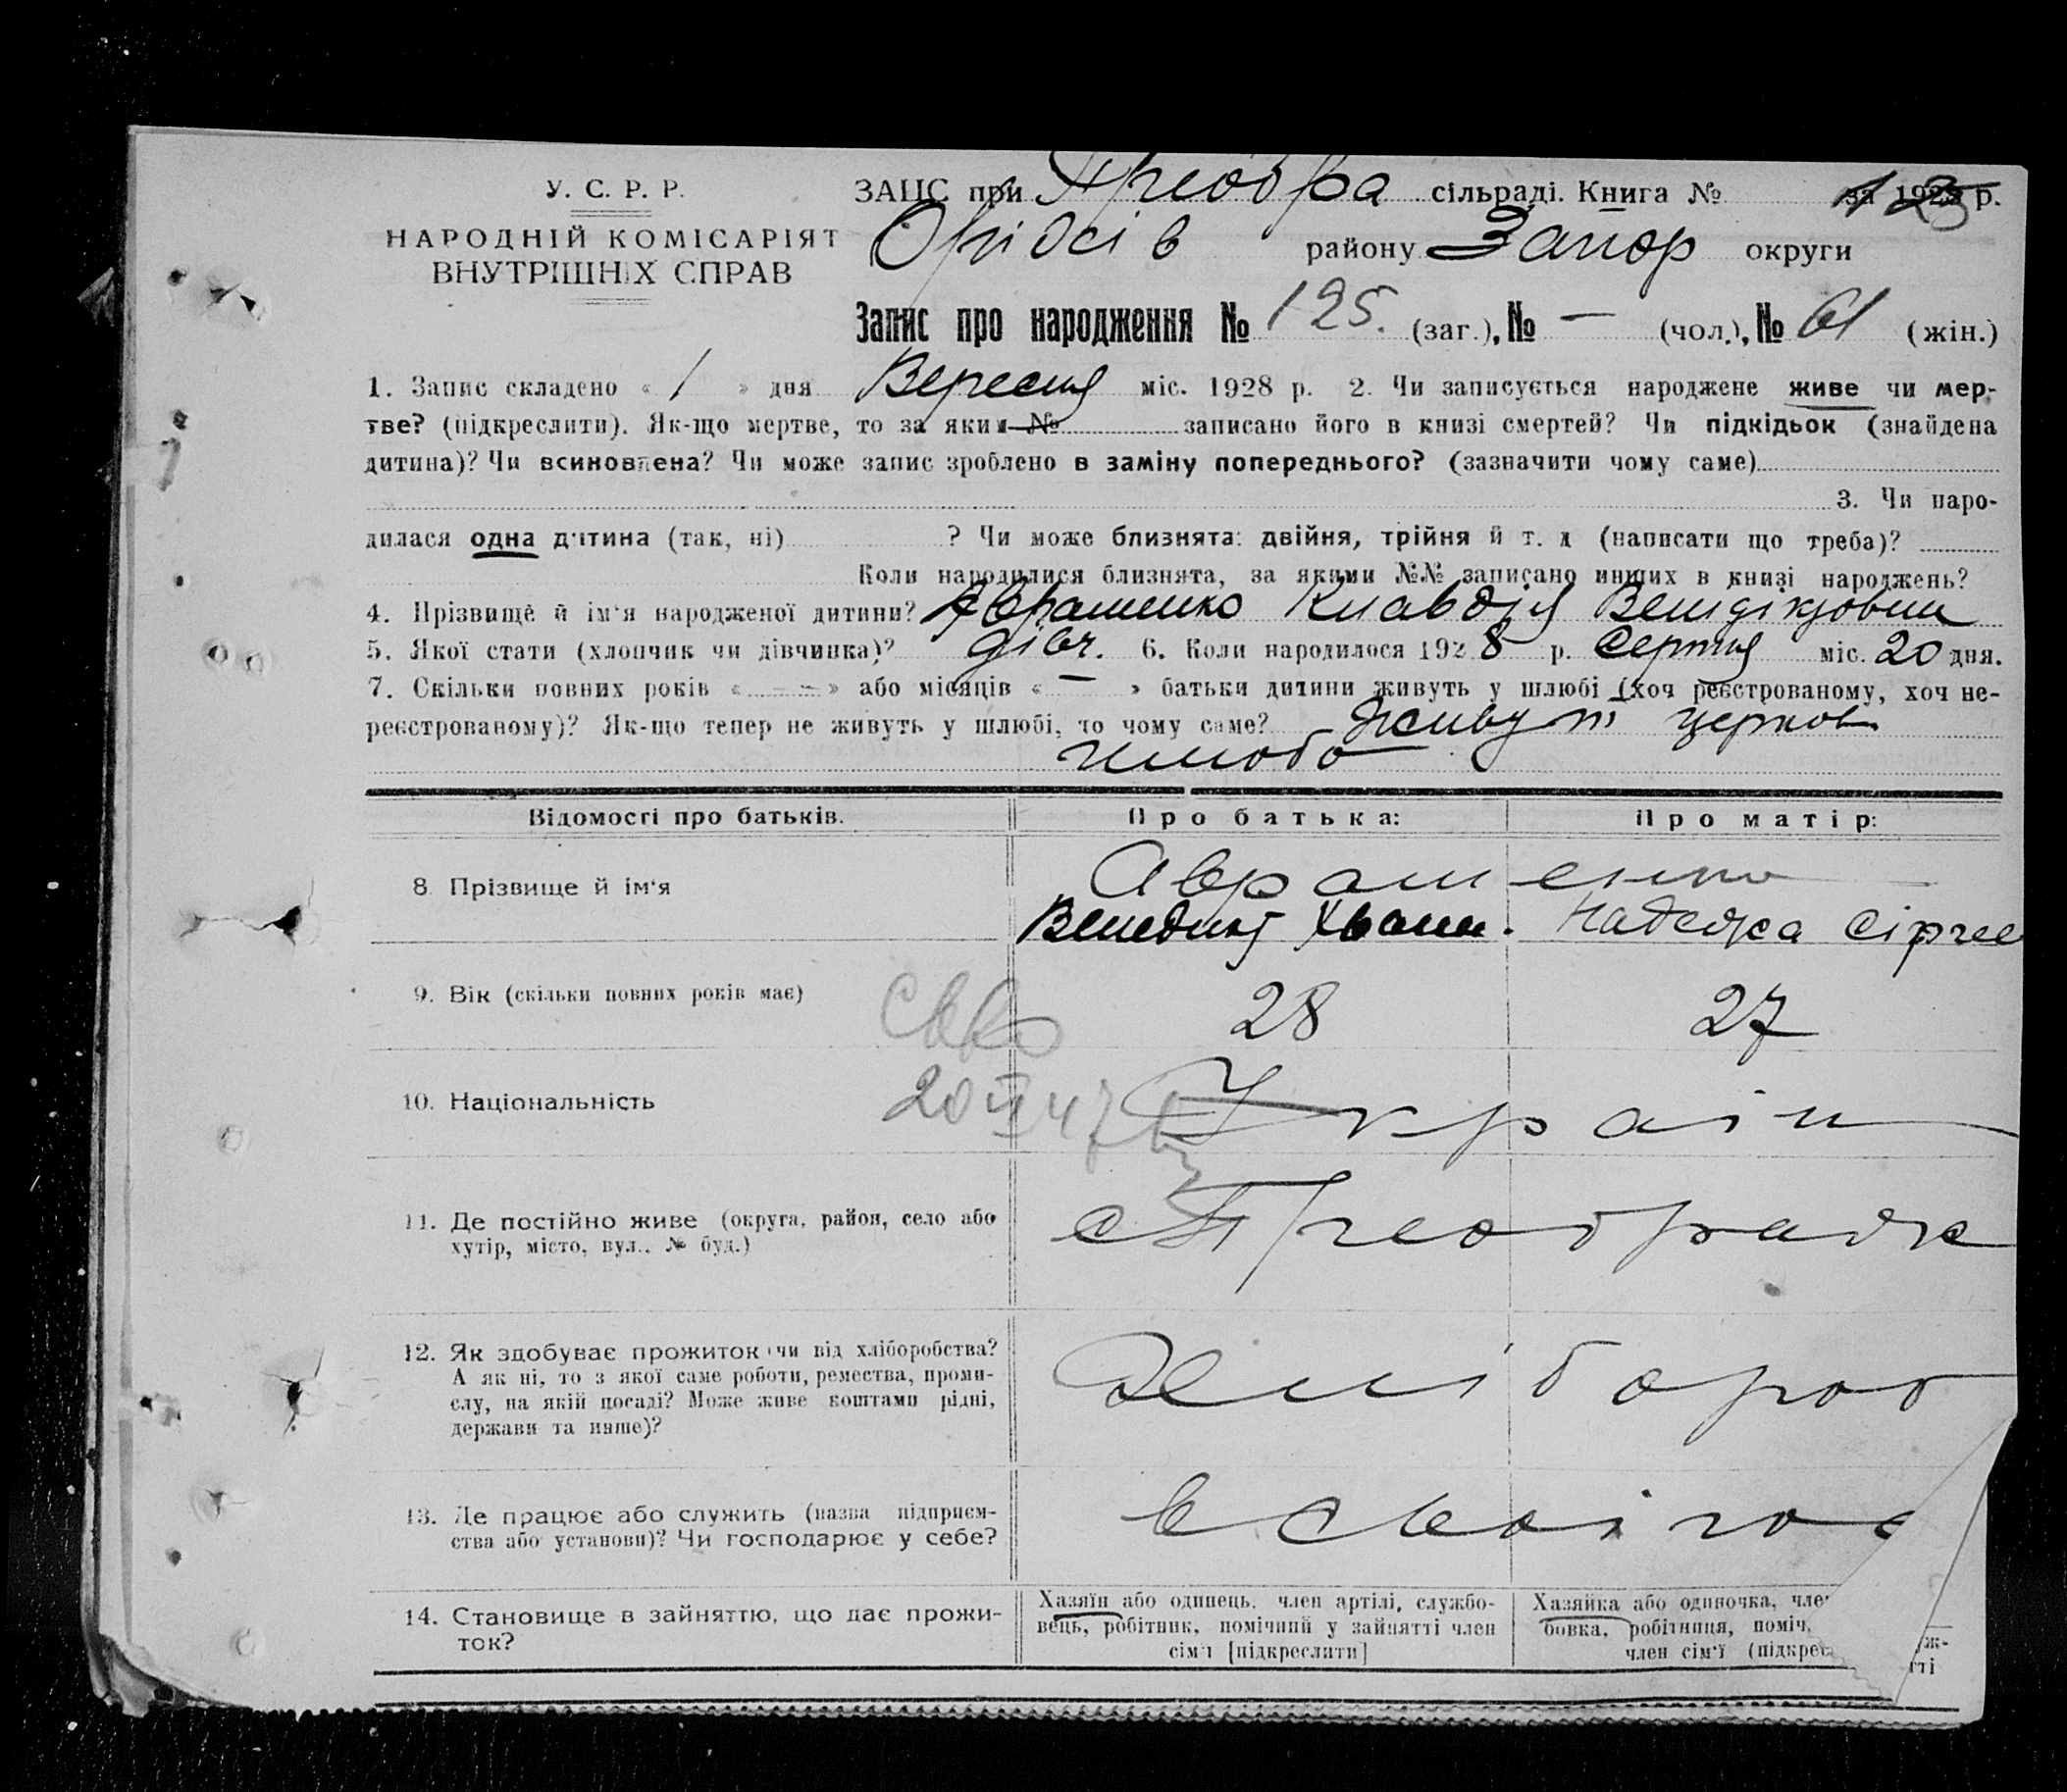 У. С. Р. Р.
НАРОДНІЙ КОМІСАРІЯТ
ВНУТРІШНІХ СПРАВ
ЗАЦС при Преобра сільраді. Книга № за 1928 р.
Оріхів району Запор округи
Запис про народження № 125. (заг.), № — (чол.), № 61 (жін.)
1. Запис складено « 1 » дня Вересня міс. 1928 р. 2. Чи записується народжене живе чи мер-
тве? (підкреслити). Як-що мертве, то за яким № записано його в книзі смертей? Чи підкідьок (знайдена
дитина)? Чи всиновлена? Чи може запис зроблено в заміну попереднього? (зазначити чому саме)
3. Чи наро-
дилася одна дитина (так, ні) ? Чи може близнята: двійня, трійня й т. д (написати що треба)?
Коли народилися близнята, за якими №№ записано инших в книзі народжень?
4. Прізвище й ім'я народженої дитини? Аврашенко Клавдія
5. Якої стати (хлопчик чи дівчинка)? дівч. 6. Коли народилося 1928 р. Серпня міс. 20 дня.
7. Скільки повних років « — » або місяців « — » батьки дитини живуть у шлюбі (хоч реєстрованому, хоч не-
реєстрованому)? Як-що тепер не живуть у шлюбі, то чому саме? Живут церков
шлюбо
Відомості про батьків. Про батька: Про матір:
8. Прізвище й ім'я Аврашенко
Венедикт Іван. Надежа Сірге
9. Вік (скільки повних років має) 28 27
10. Національність Україн
20 VI 47
11. Де постійно живе (округа, район, село або с Преображ
хутір, місто, вул., № буд.)
12. Як здобуває прожиток чи від хліборобства? Хлібороб
А як ні, то з якої саме роботи, ремества, проми-
слу, на якій посаді? Може живе коштами рідні,
держави та инше)?
13. Де працює або служить (назва підприєм- в своїго
ства або установи)? Чи господарює у себе?
14. Становище в зайняттю, що дає прожи-
ток?
Хазяїн або одинець, член артілі, службо-
вець, робітник, помічний у зайнятті член
сім'ї [підкреслити]
Хазяйка або одиночка, чле
бовка, робітниця, поміч.
член сім'ї (підкрес